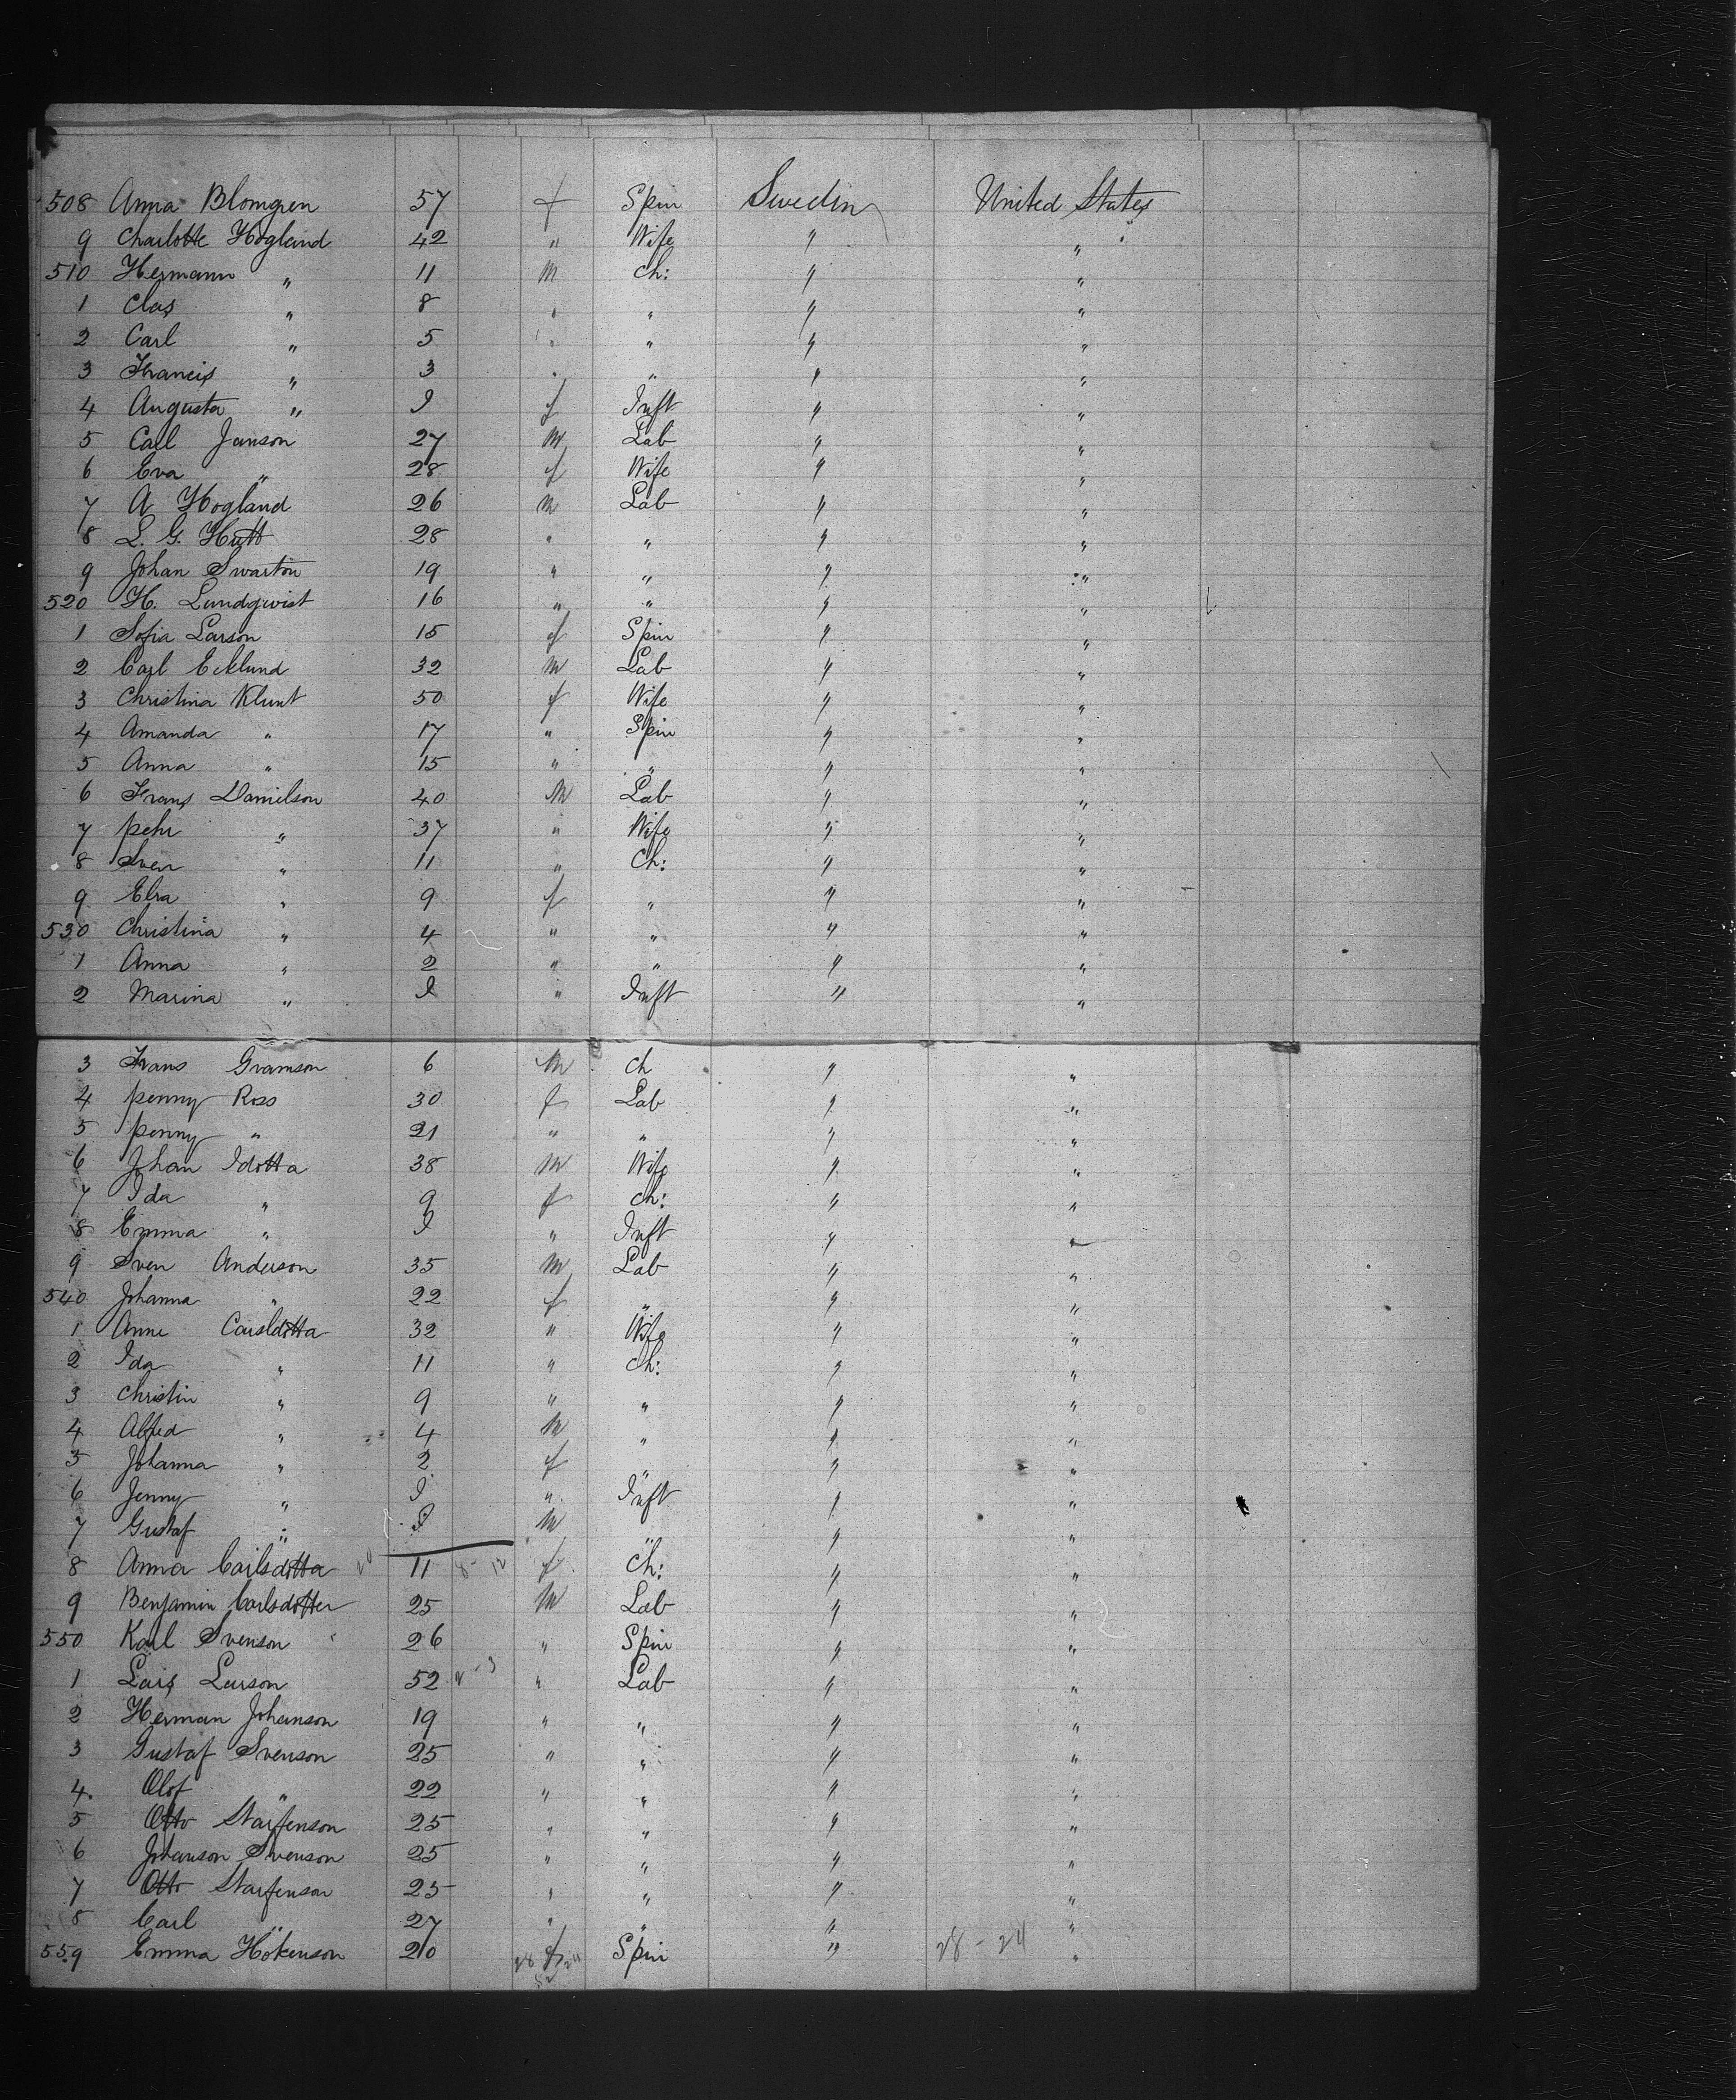 508 Anna Blomgren 57 f Spin Sweden United States
9 Charlotte Hogland 42 " Wife " "
510 Hermann " 11 M Ch: " "
1 Clas " 8 " " " "
2 Carl " 5 " " " "
3 Francis " 3 " " " "
4 Augusta " I f Inft " "
5 Carl Janson 27 M Lab " "
6 Eva " 28 f Wife " "
7 A Hogland 26 M Lab " "
8 L. G. Hutt 28 " " " "
9 Johan Swarton 19 " " " "
520 H. Lundqwist 16 " " " "
1 Sofia Larson 15 f Spin " "
2 Carl Ecklund 32 M Lab " "
3 Christina Klunt 50 f Wife " "
4 Amanda " 17 " Spin " "
5 Anna " 15 " " " "
6 Frans Danielson 40 M Lab " "
7 pehr " 37 " Wife " "
8 Sven " 11 " Ch: " "
9 Elra " 9 f " " "
530 Christina " 4 " " " "
1 Anna " 2 " " " "
2 Marina " I " Inft " "
3 Frans Gramson 6 M ch " "
4 penny Ross 30 f Lab " "
5 penny " 21 " " " "
6 Johan Idotta 38 M Wife " "
7 Ida " 9 f ch: " "
8 Emma " I " Inft " "
9 Sven Anderson 35 M Lab " "
540 Johanna " 22 f " " "
1 Anne Carsldotta 32 " Wife " "
2 Ida " 11 " Ch: " "
3 Christin " 9 " " " "
4 Alfred " 4 M " " "
5 Johanna " 2 f " " "
6 Jenny " I " Inft " "
7 Gustaf " I M " " "
8 Anna Carlsdotta 20 11 8 - 12 f Ch: " "
9 Benjamin Carlsdotter 25 M Lab " "
550 Karl Svenson 26 " Spin " "
1 Lars Larson 52 2 - 3 " Lab " "
2 Herman Johanson 19 " " " "
3 Gustaf Svenson 25 " " " "
4. Olof " 22 " " " "
5 Otto Starfenson 25 " " " "
6 Johanson Svenson 25 " " " "
7 Otto Starfenson 25 " " " "
8 Carl " 27 " " " "
559 Emma Hökenson 20 f Spin " 28 - 24 "